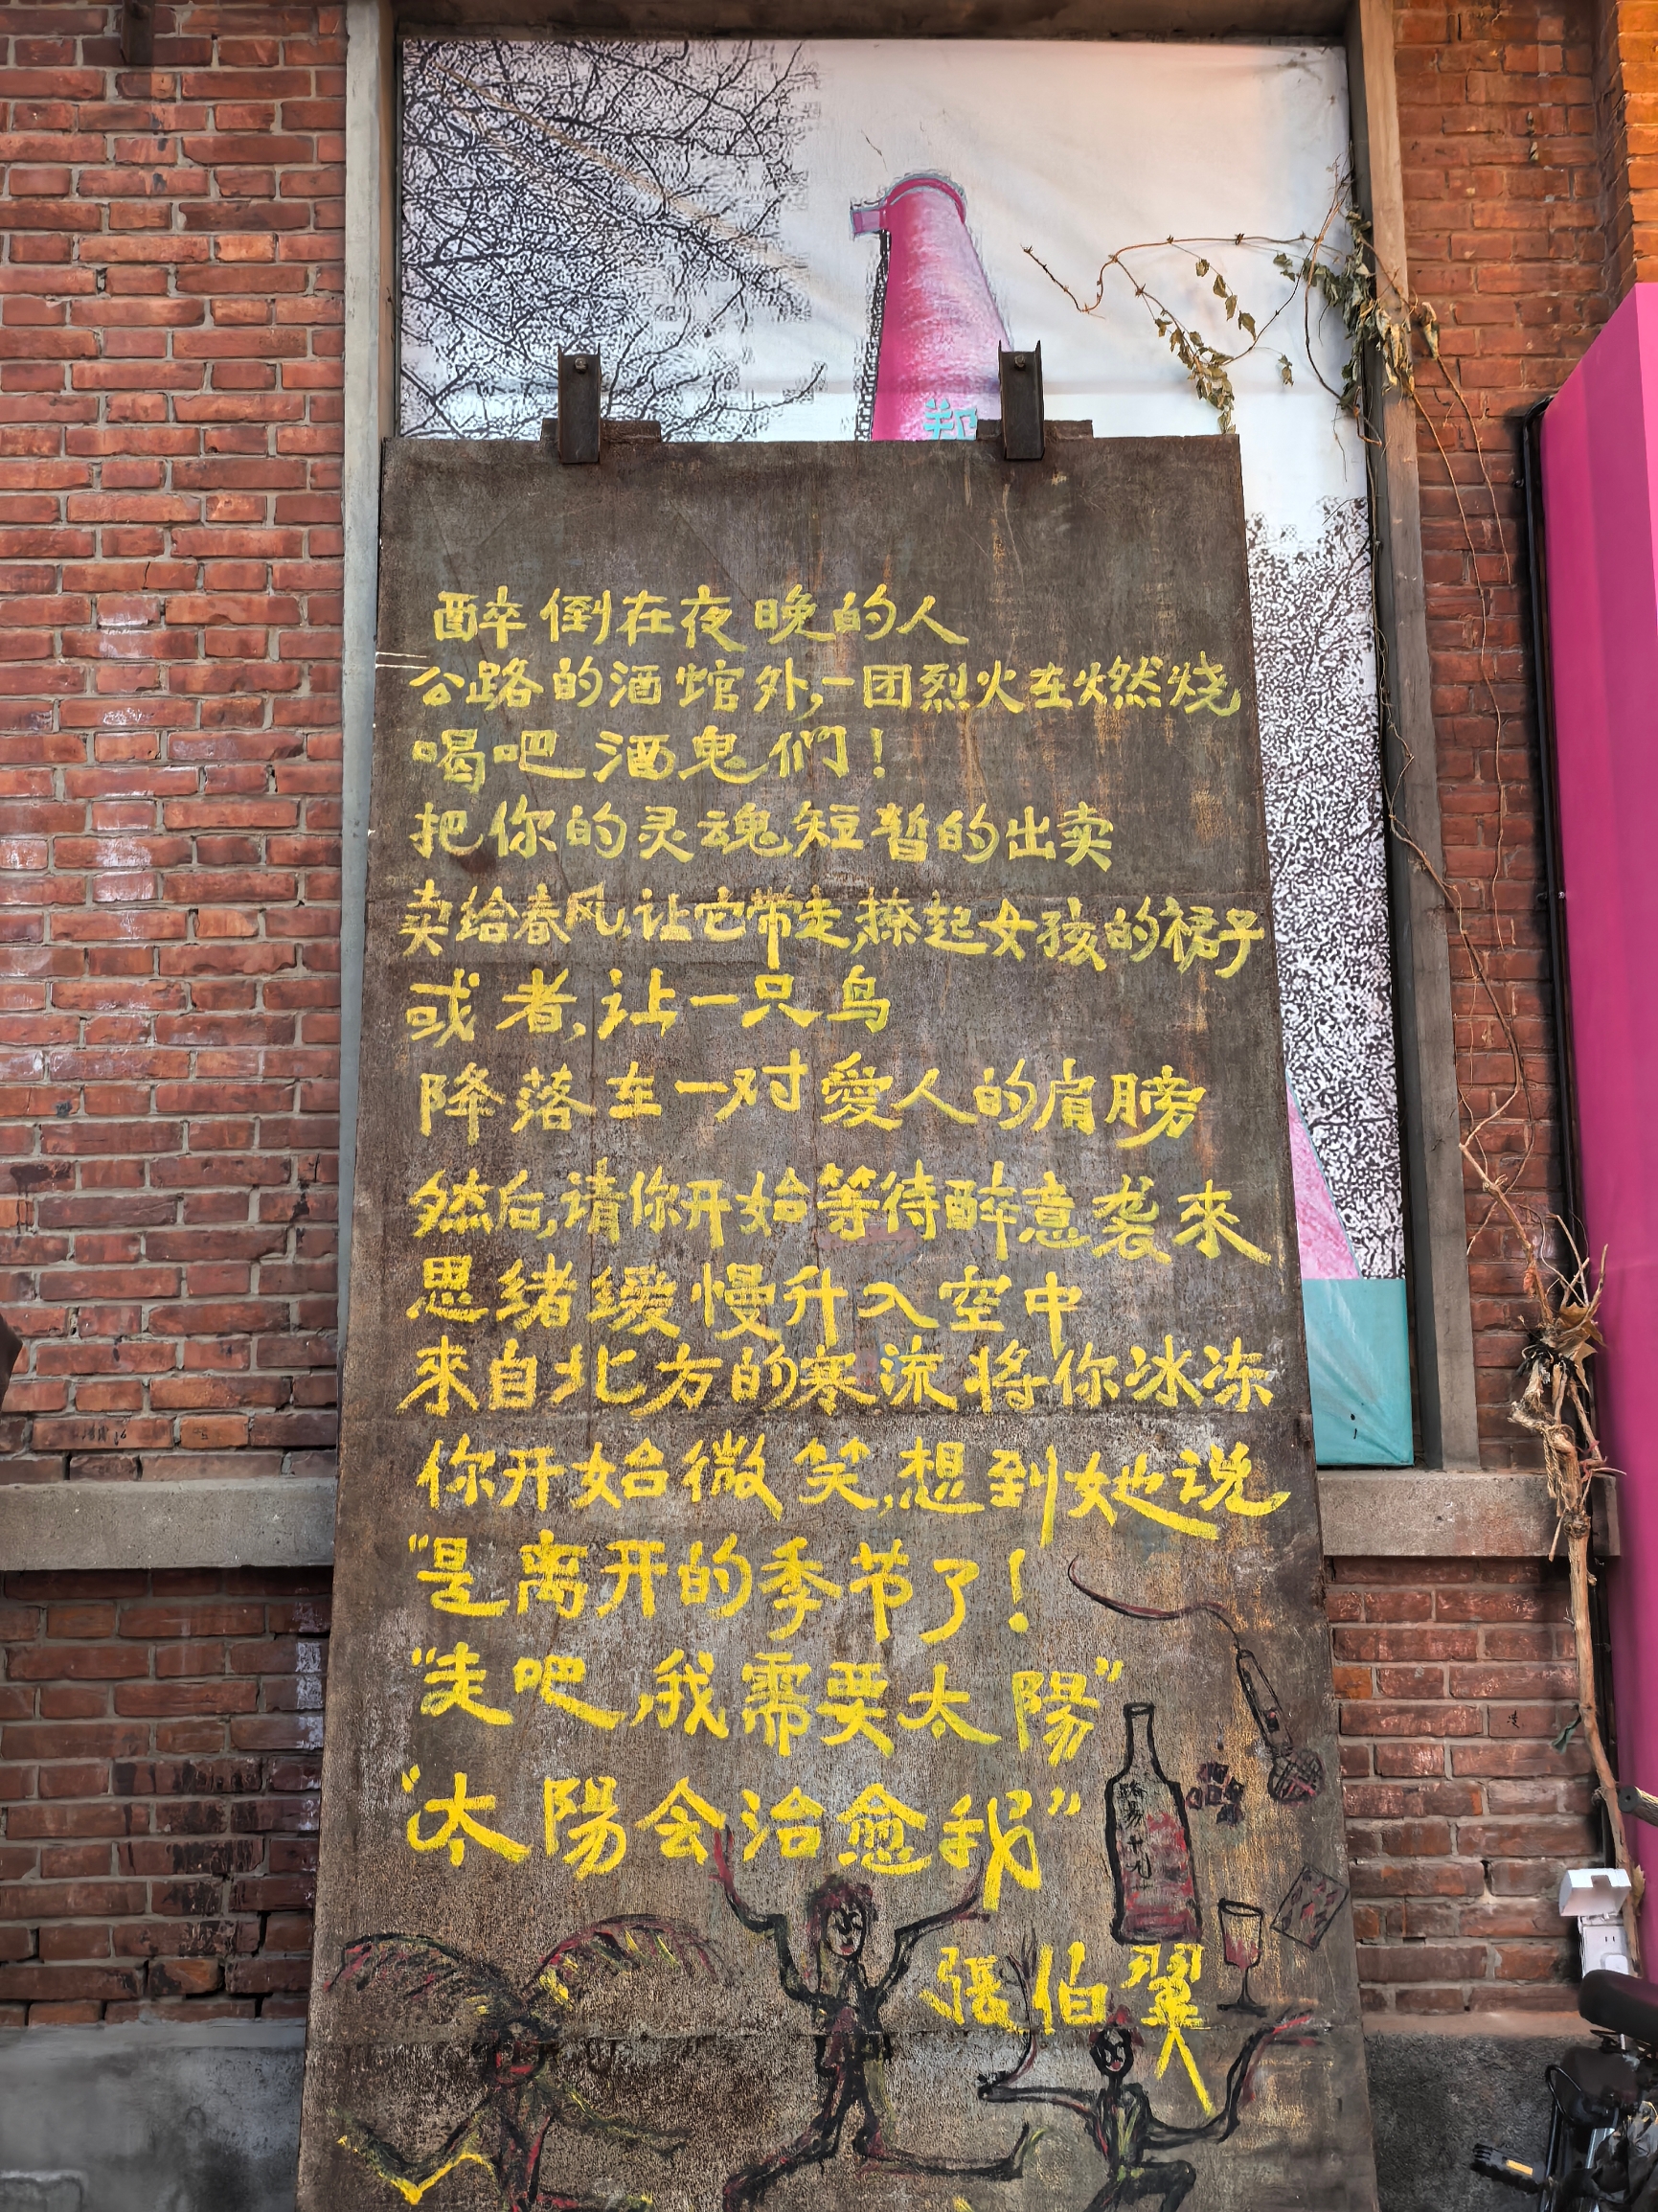 郑
醉倒在夜晚的人
公路的酒馆外,一团烈火在燃烧
喝吧 酒鬼们!
把你的灵魂短暂的出卖
卖给春风,让它带走,撩起女孩的裙子
或者,让一只鸟
降落在一对愛人的肩膀
然后,请你开始等待醉意袭來
思绪缓慢升入空中
來自北方的寒流将你冰冻
你开始微笑,想到她说
"是离开的季节了!
"走吧,我需要太陽"
"太陽会治愈我"
路易十九
張伯翼